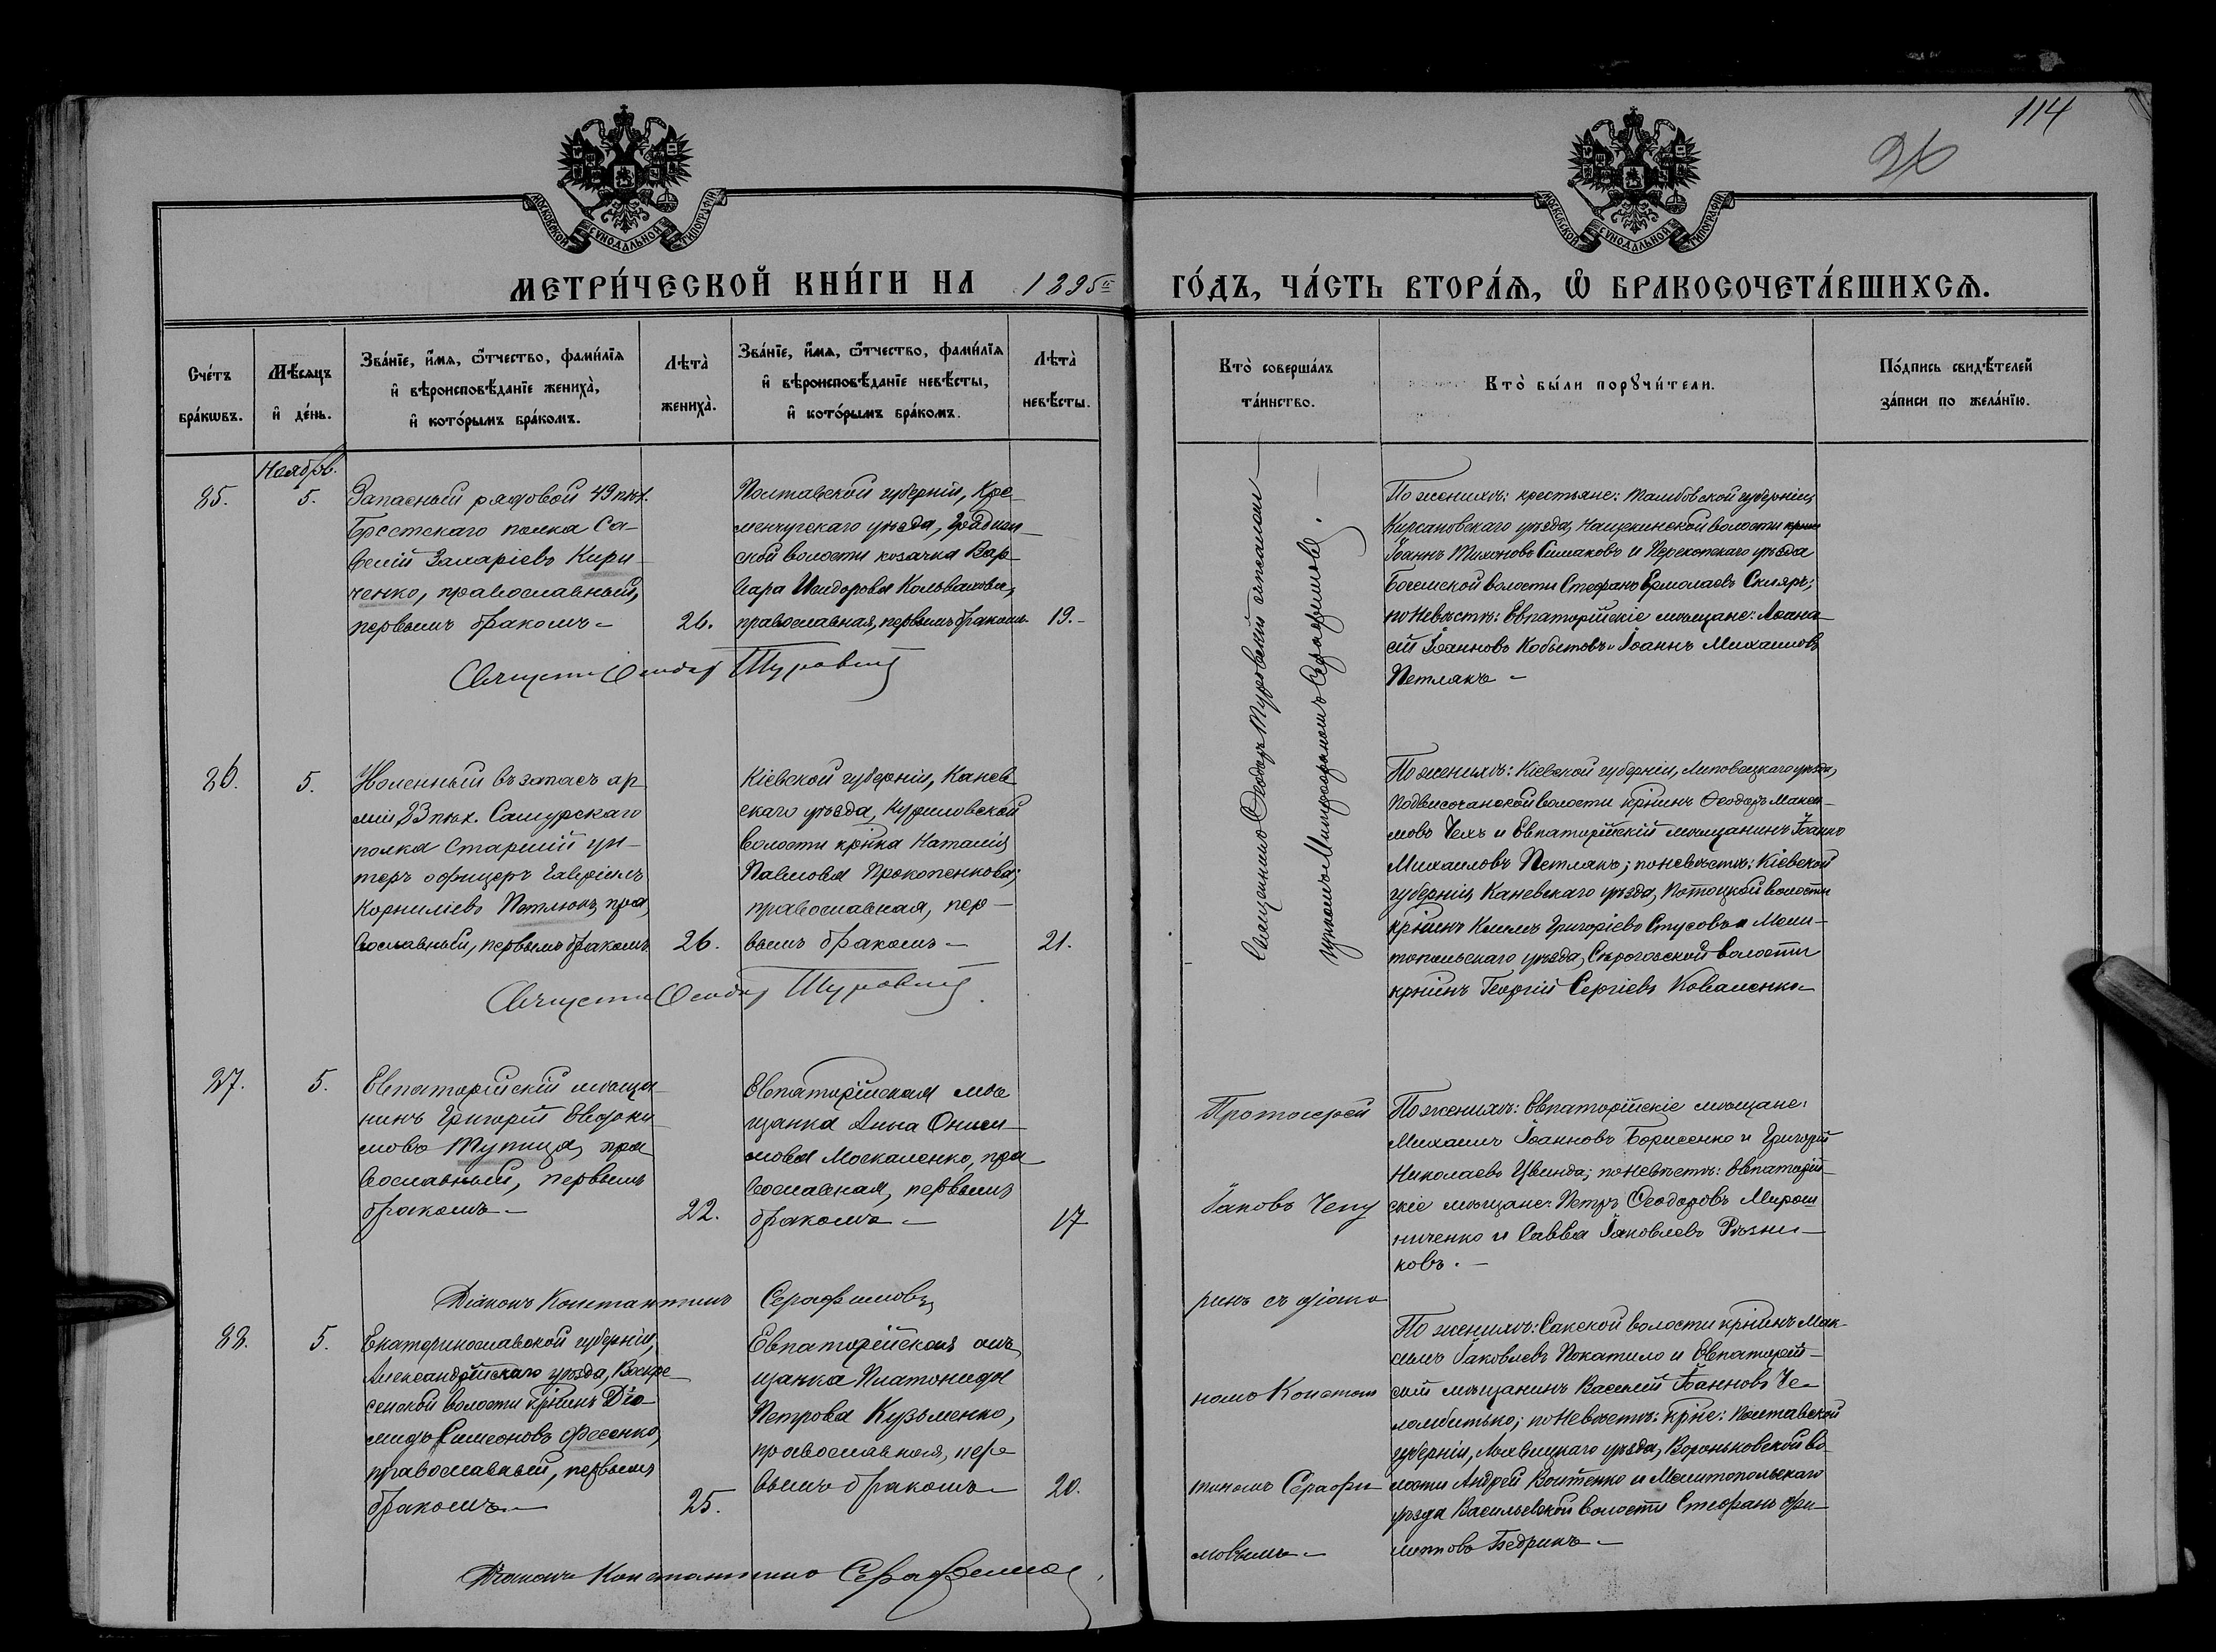 114
26
МОСКОВСКОЙ СѴНОДАЛЬНОЙ ТИПОГРАФІИ
МОСКОВСКОЙ СѴНОДАЛЬНОЙ ТИПОГРАФІИ
МЕТРИ́ЧЕСКОЙ КНИ́ГИ НА 1895й
ГО́ДЪ, ЧА́СТЬ ВТОРА́Ѧ, Ѽ БРАКОСОЧЕТА́ВШИХСѦ.
Сче́тъ
бра́кѡвъ.
Мѣ́сяцъ
и҆ де́нь.
Зва́нїе, и҆́мѧ, ѻ҆́тчество, фами́лїѧ
и҆ вѣроисповѣ́данїе жениха̀,
и҆ кото́рымъ бра́комъ.
Лѣта̀
жениха̀.
Зва́нїе, и҆́мѧ, ѻ҆́тчество, фами́лїѧ
и҆ вѣроисповѣ́данїе невѣ́сты,
и҆ кото́рымъ бра́комъ.
Лѣта̀
невѣ́сты.
Кто̀ соверша́лъ
та́инство.
Кто̀ бы́ли порꙋчи́тели.
По́дпись свидѣ́телей
за́писи по жела́нїю.
Ноябрь.
25.
5.
Запасный рядовой 49 пѣх.
Брестскаго полка Са-
велій Захаріевъ Кири-
ченко, православный,
первымъ бракомъ-
26.
Полтавской губерніи, Кре-
менчугскаго уѣзда, Градиж-
ской волости козачка Вар-
вара Исидорова
православная, первымъ бракомъ
19.-
Священникъ Ѳеодоръ Туровскій съ
діакономъ Серафимовы
По женихѣ: крестьяне: Тамбовской губерніи,
Кирсановскаго уѣзда, Нащекинской волости
Іоаннъ Тихоновъ Симаковъ и Перекопскаго уѣзда
волости Стефанъ Ермолаевъ Скляръ;
по невѣстѣ: Евпаторійскіе мѣщане: Аѳана-
сій Іоанновъ Кобытовъ и Іоаннъ Михаиловъ
Петлякъ -
Священникъ Ѳеодоръ Туровскій
26.
5.
Уволенный въ запасъ ар-
міи 83 пѣх. Самурскаго
полка старшій ун-
теръ офицеръ Гавріилъ
Корниліевъ Петлюкъ, пра-
вославный, первымъ бракомъ
26.
Кіевской губерніи, Канев-
скаго уѣзда, Куриловской
волости крѣнка Наталія
Павлова Прокопенкова,
православная, пер-
вымъ бракомъ -
21.
По женихѣ: Кіевской губерніи, Липовецкаго уѣзда,
Подвысочанской волости крѣнинъ Ѳеодоръ Макси-
мовъ Чехъ и Евпаторійскій мѣщанинъ Іоаннъ
Михаиловъ Петлякъ; по невѣстѣ: Кіевской
губерніи Каневскаго уѣзда, Потоцкой волости
крѣнинъ Климъ Григоріевъ Стусовъ и Мели-
топольскаго уѣзда, Сѣрогозской волости
крѣнинъ Георгій Сергіевъ Коваленко-
Священникъ Ѳеодоръ Туровскій
27.
5.
Евпаторійскій мѣща-
нинъ Григорій Евфоки-
мовъ Тупица, пра-
вославный, первымъ
бракомъ -
22.
Евпаторійская мѣ-
щанка Анна Ониси-
мова Москаленко, пра-
вославная, первымъ
бракомъ -
17
Протоіерей
Іаковъ Чепу
ринъ съ діако
номъ Констан
тиномъ Серафи
мовымъ -
По женихѣ: Евпаторійскіе мѣщане:
Михаилъ Іоанновъ Борисенко и Григорій
Николаевъ Цвинда; по невѣстѣ: Евпаторій-
скіе мѣщане: Петръ Ѳеодоровъ Мирош-
ниченко и Савва Іаковлевъ Рѣзни-
ковъ. -
Діаконъ Константинъ Серафимовъ
28.
5.
Екатеринославской губерніи,
Александрійскаго уѣзда, Воскре-
сенской волости крѣнинъ Діо-
мидъ Симеоновъ Фесенко,
православный, первымъ
бракомъ. -
25.
Евпаторійская мѣ-
щанка Платонида
Петрова Кузьменко,
православная, пер-
вымъ бракомъ -
20.
По женихѣ: Сакской волости крѣнинъ Мак-
симъ Іаковлевъ Покатило и Евпаторій-
скій мѣщанинъ Василій Іоанновъ Че-
ломбитько; по невѣстѣ: крѣне: Полтавской
губерніи, Лохвицкаго уѣзда, Вороньковской во-
лости Андрей Войтенко и Мелитопольскаго
уѣзда Васильевской волости Стефанъ Фи-
липповъ Бедрикъ -
Діаконъ Константинъ Серафимовъ